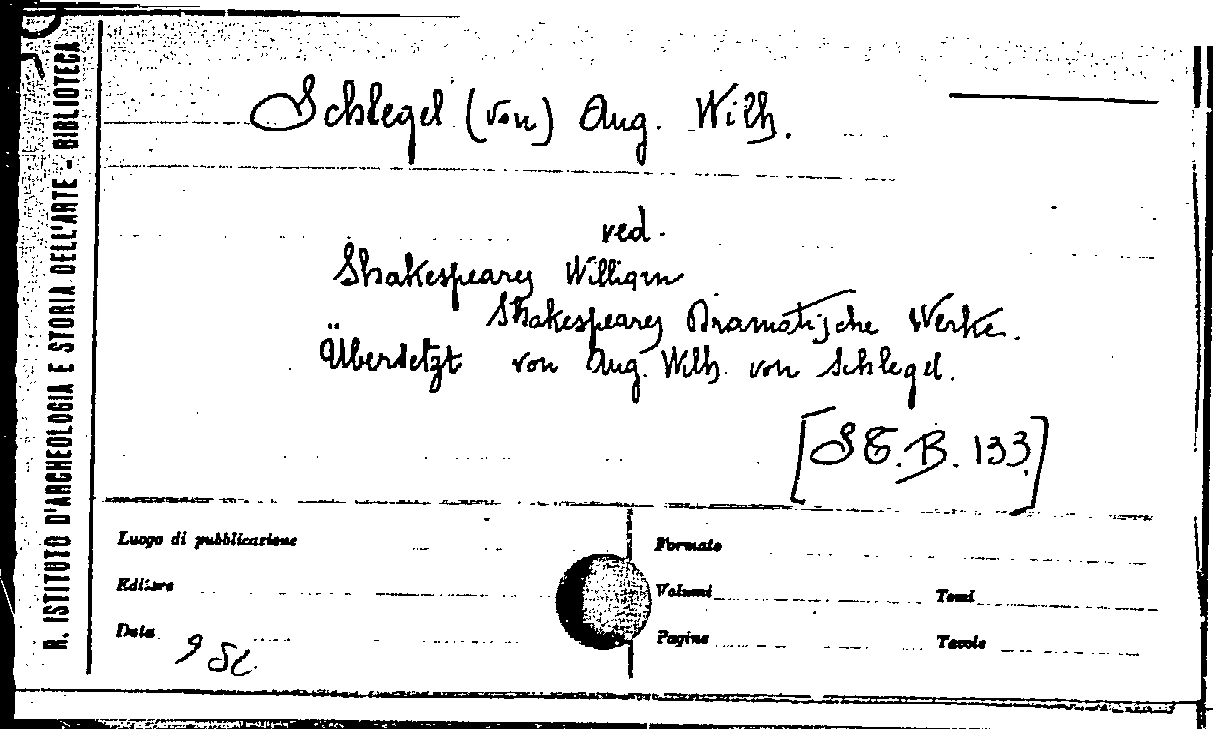 R. ISTITUTO D'ARCHEOLOGIA E STORIA DELL'ARTE - BIBLIOTECA
Schlegel (von) Aug. Wilh.
ved.
Shakespeares William
Shakespeares Dramatische Werke.
Übersetzt von Aug. Wilh. von Schlegel.
[S E. B. 133]
Luogo di pubblicazione
Editore
Data
Formato
Volumi Tomi
Pagine Tavole